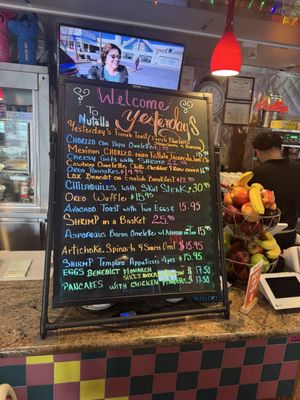 Welcome
To Yesterday's
Nutella
Yesterday's French Toast
Chorizo con Papa Omelette
Mexican Omelette
Cheesy Grits with Shrimp 22.95
Oreo Pancakes $14.95
Lox Benedict on English 22.95
Chilaquiles with Skirt Steak 30.95
Oreo Waffle $15.95
Avocado Toast with Two Eggs 15.95
Shrimp in a Basket 25.95
Asparagus Bacon Omelette 15.95
Artichoke, Spinach & Swiss Omt $15.95
Shrimp Tempura Appetizers 4pcs $15.95
Eggs Benedict Monarch $17.50
Pancakes with Chicken $17.50